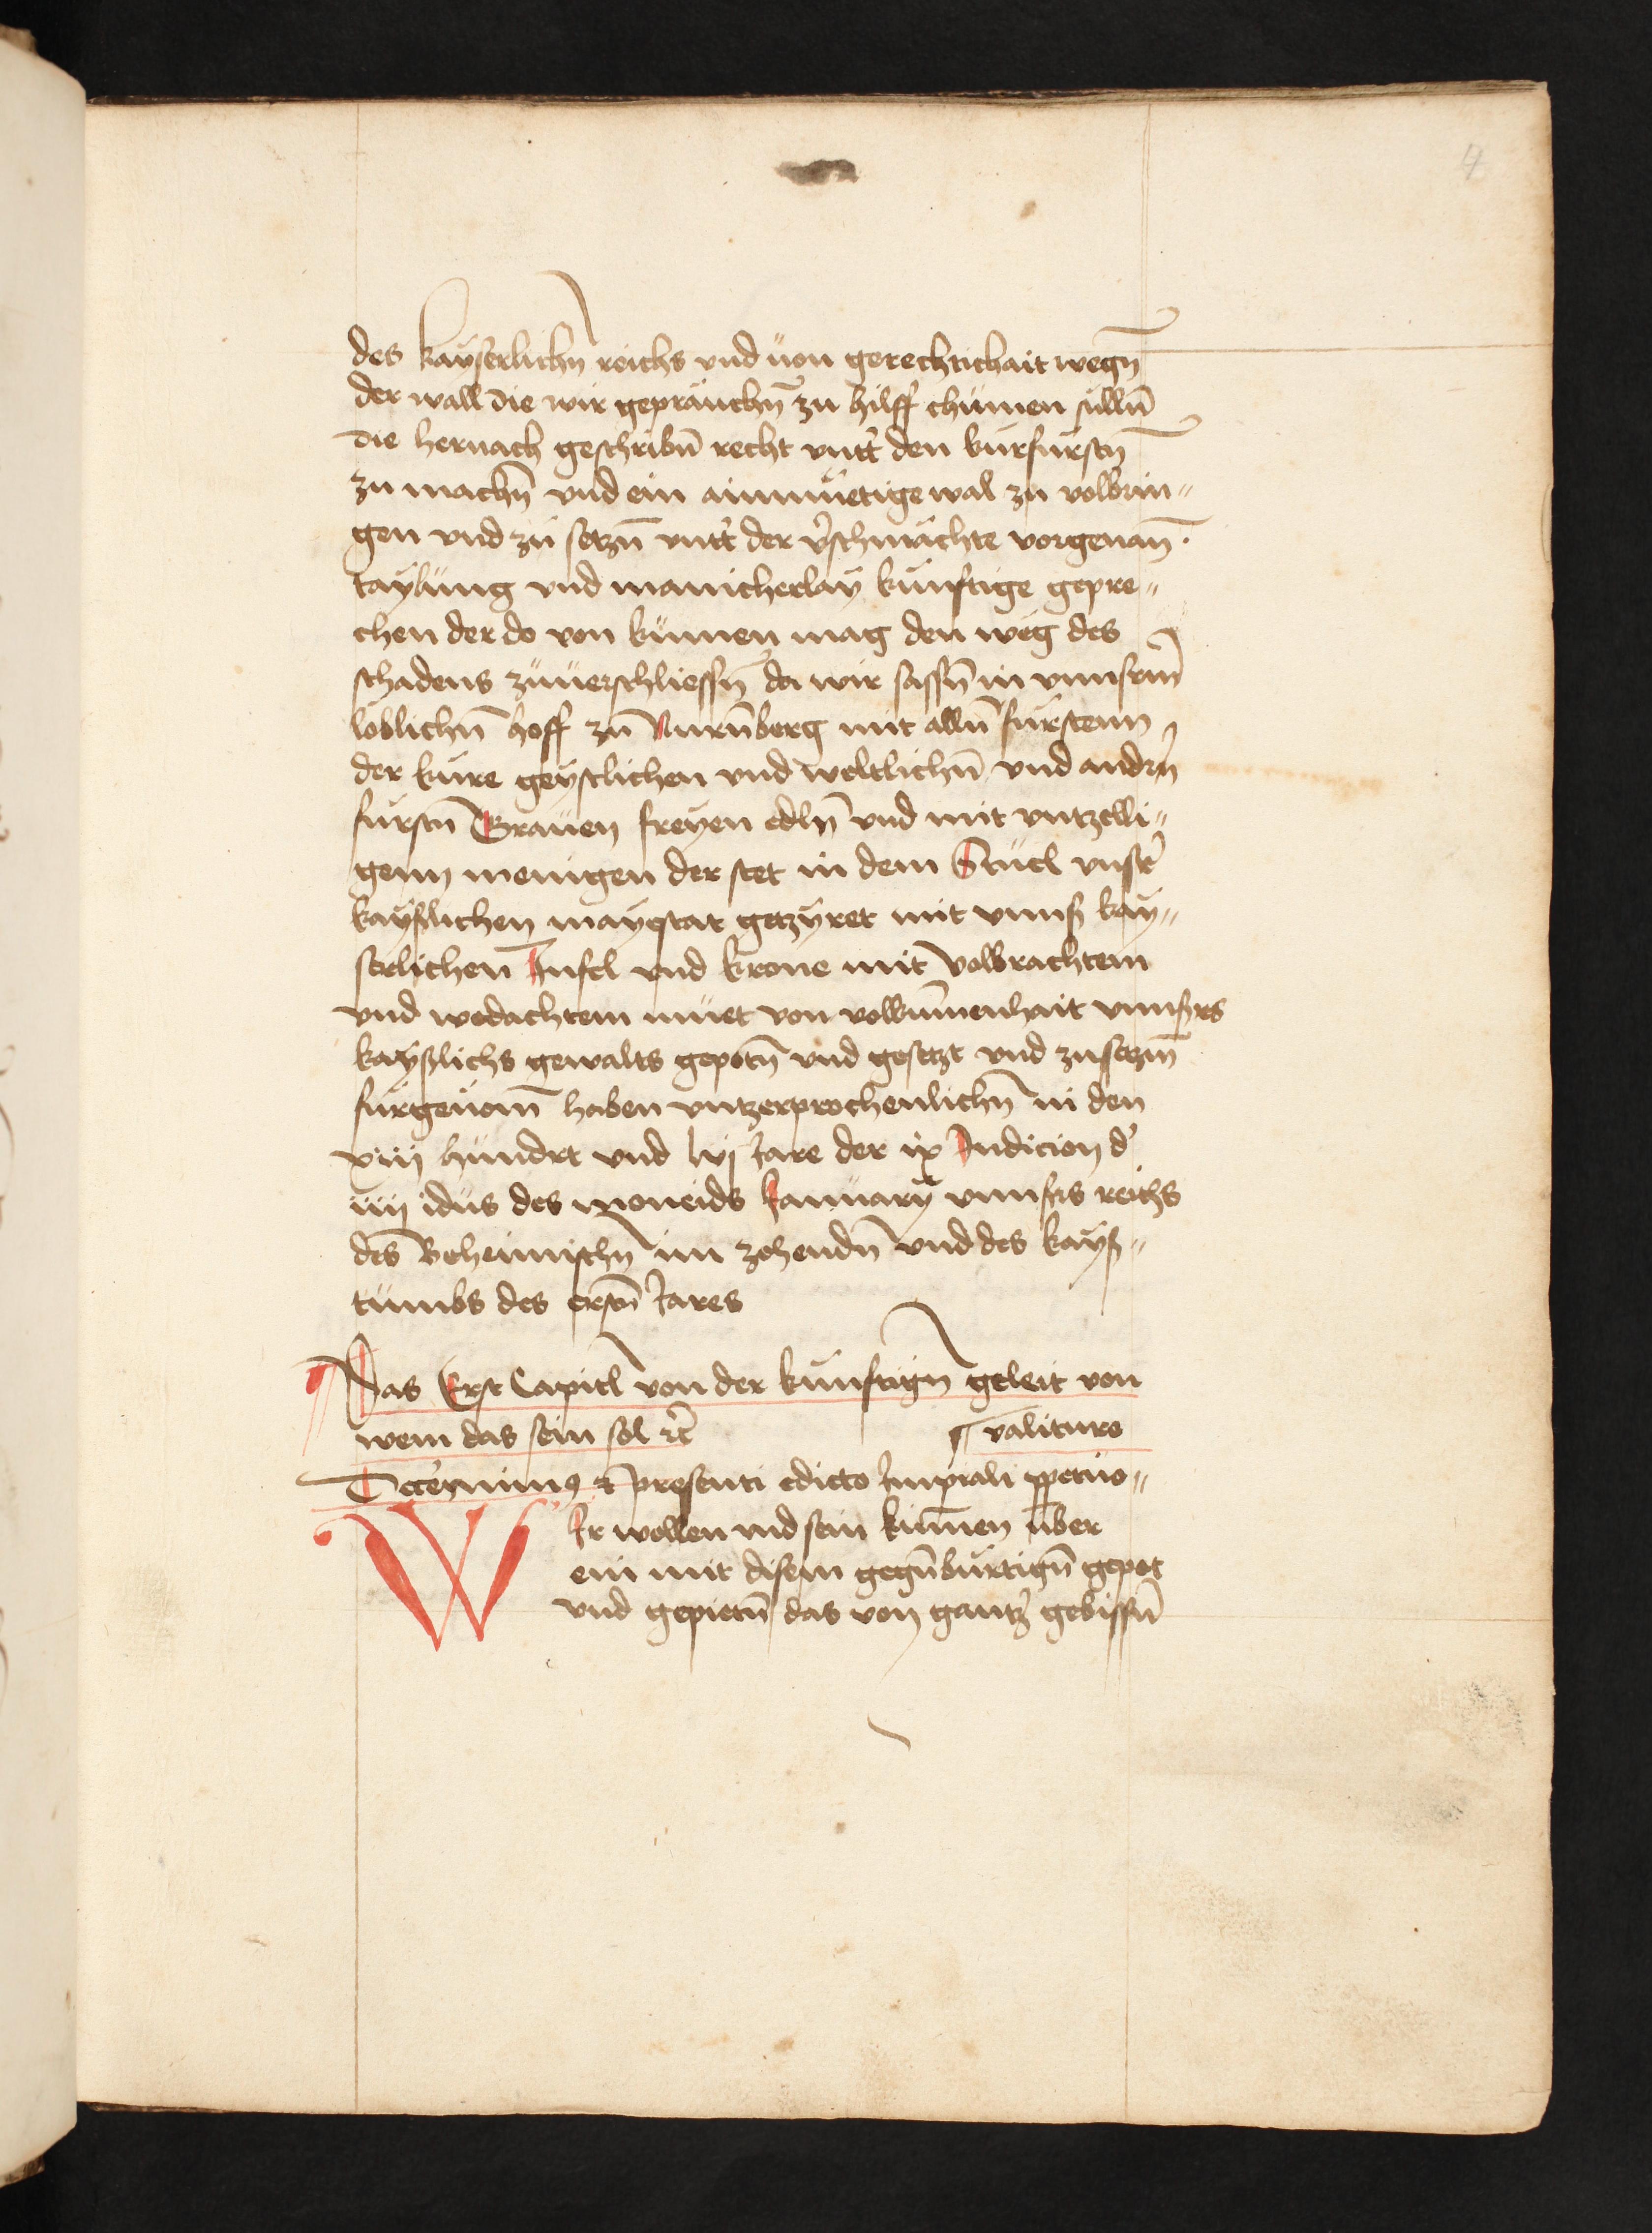 4
des kayserlichn̄ reichs vnd uon gerechtichait wegn̄
der wall die wir gepräuchn̄ zu hilff chumen sulln̄
die hernach geschribn̄ recht vntt̓ den kurfurstn̄
zu machn̄ vnd ein ainmuetige wal zu volbrin〃
gen vnd zu setzn̄ vntt̓ der v̓schmächte vorgenan̄
taylung vnd manicherlay kunftige gepre〃
chen der do von kumen mag den weg des
schadens zuuerschliessn̄ da wir sassn̄ in vnnserm̄
loblichn̄ hoff zu Nurn̄berg mit alln̄ furstenn
der kure geystlichen vnd weltlichn̄ vnd andern̄
furstn̄ Grauen freyen edln̄ vnd mit vntzelli〃
genn menigen der stet in dem Stucl vnsr̓
kayslichen maystat getzyret mit vnns̓ kay〃
serlichen Infel vnd krone mit volbrachtem
vnd wedachtem muet von volkumenhait vnns̓rs
kays̓lichs gewalts gepotn̄ vnd gesetzt vnd zusetzn̄
furgenom̄ haben vntzerprochenlichn̄ in den
xiij hundrt vnd lvj Jare der ix Indicion d̓
iiij idus des moneids Januarÿ vnnsers reichs
des Beheimischn̄ im zehendn̄ vnd des kays̓〃
tumbs des erstn̄ Jares
Das Erst Capitl von der kunftign̄ geleit von
wem das sein sol ꝛc̄ ¶ valituro
Decernimꝰ ꝛ presenti edicto Imp̄iali ꝑpetuo〃
WIr wollen vnd sein kumen uber
ein mit disem gegn̄burtign̄ gepot
vnd gepietn̄ das von gantz̓ gebissn̄